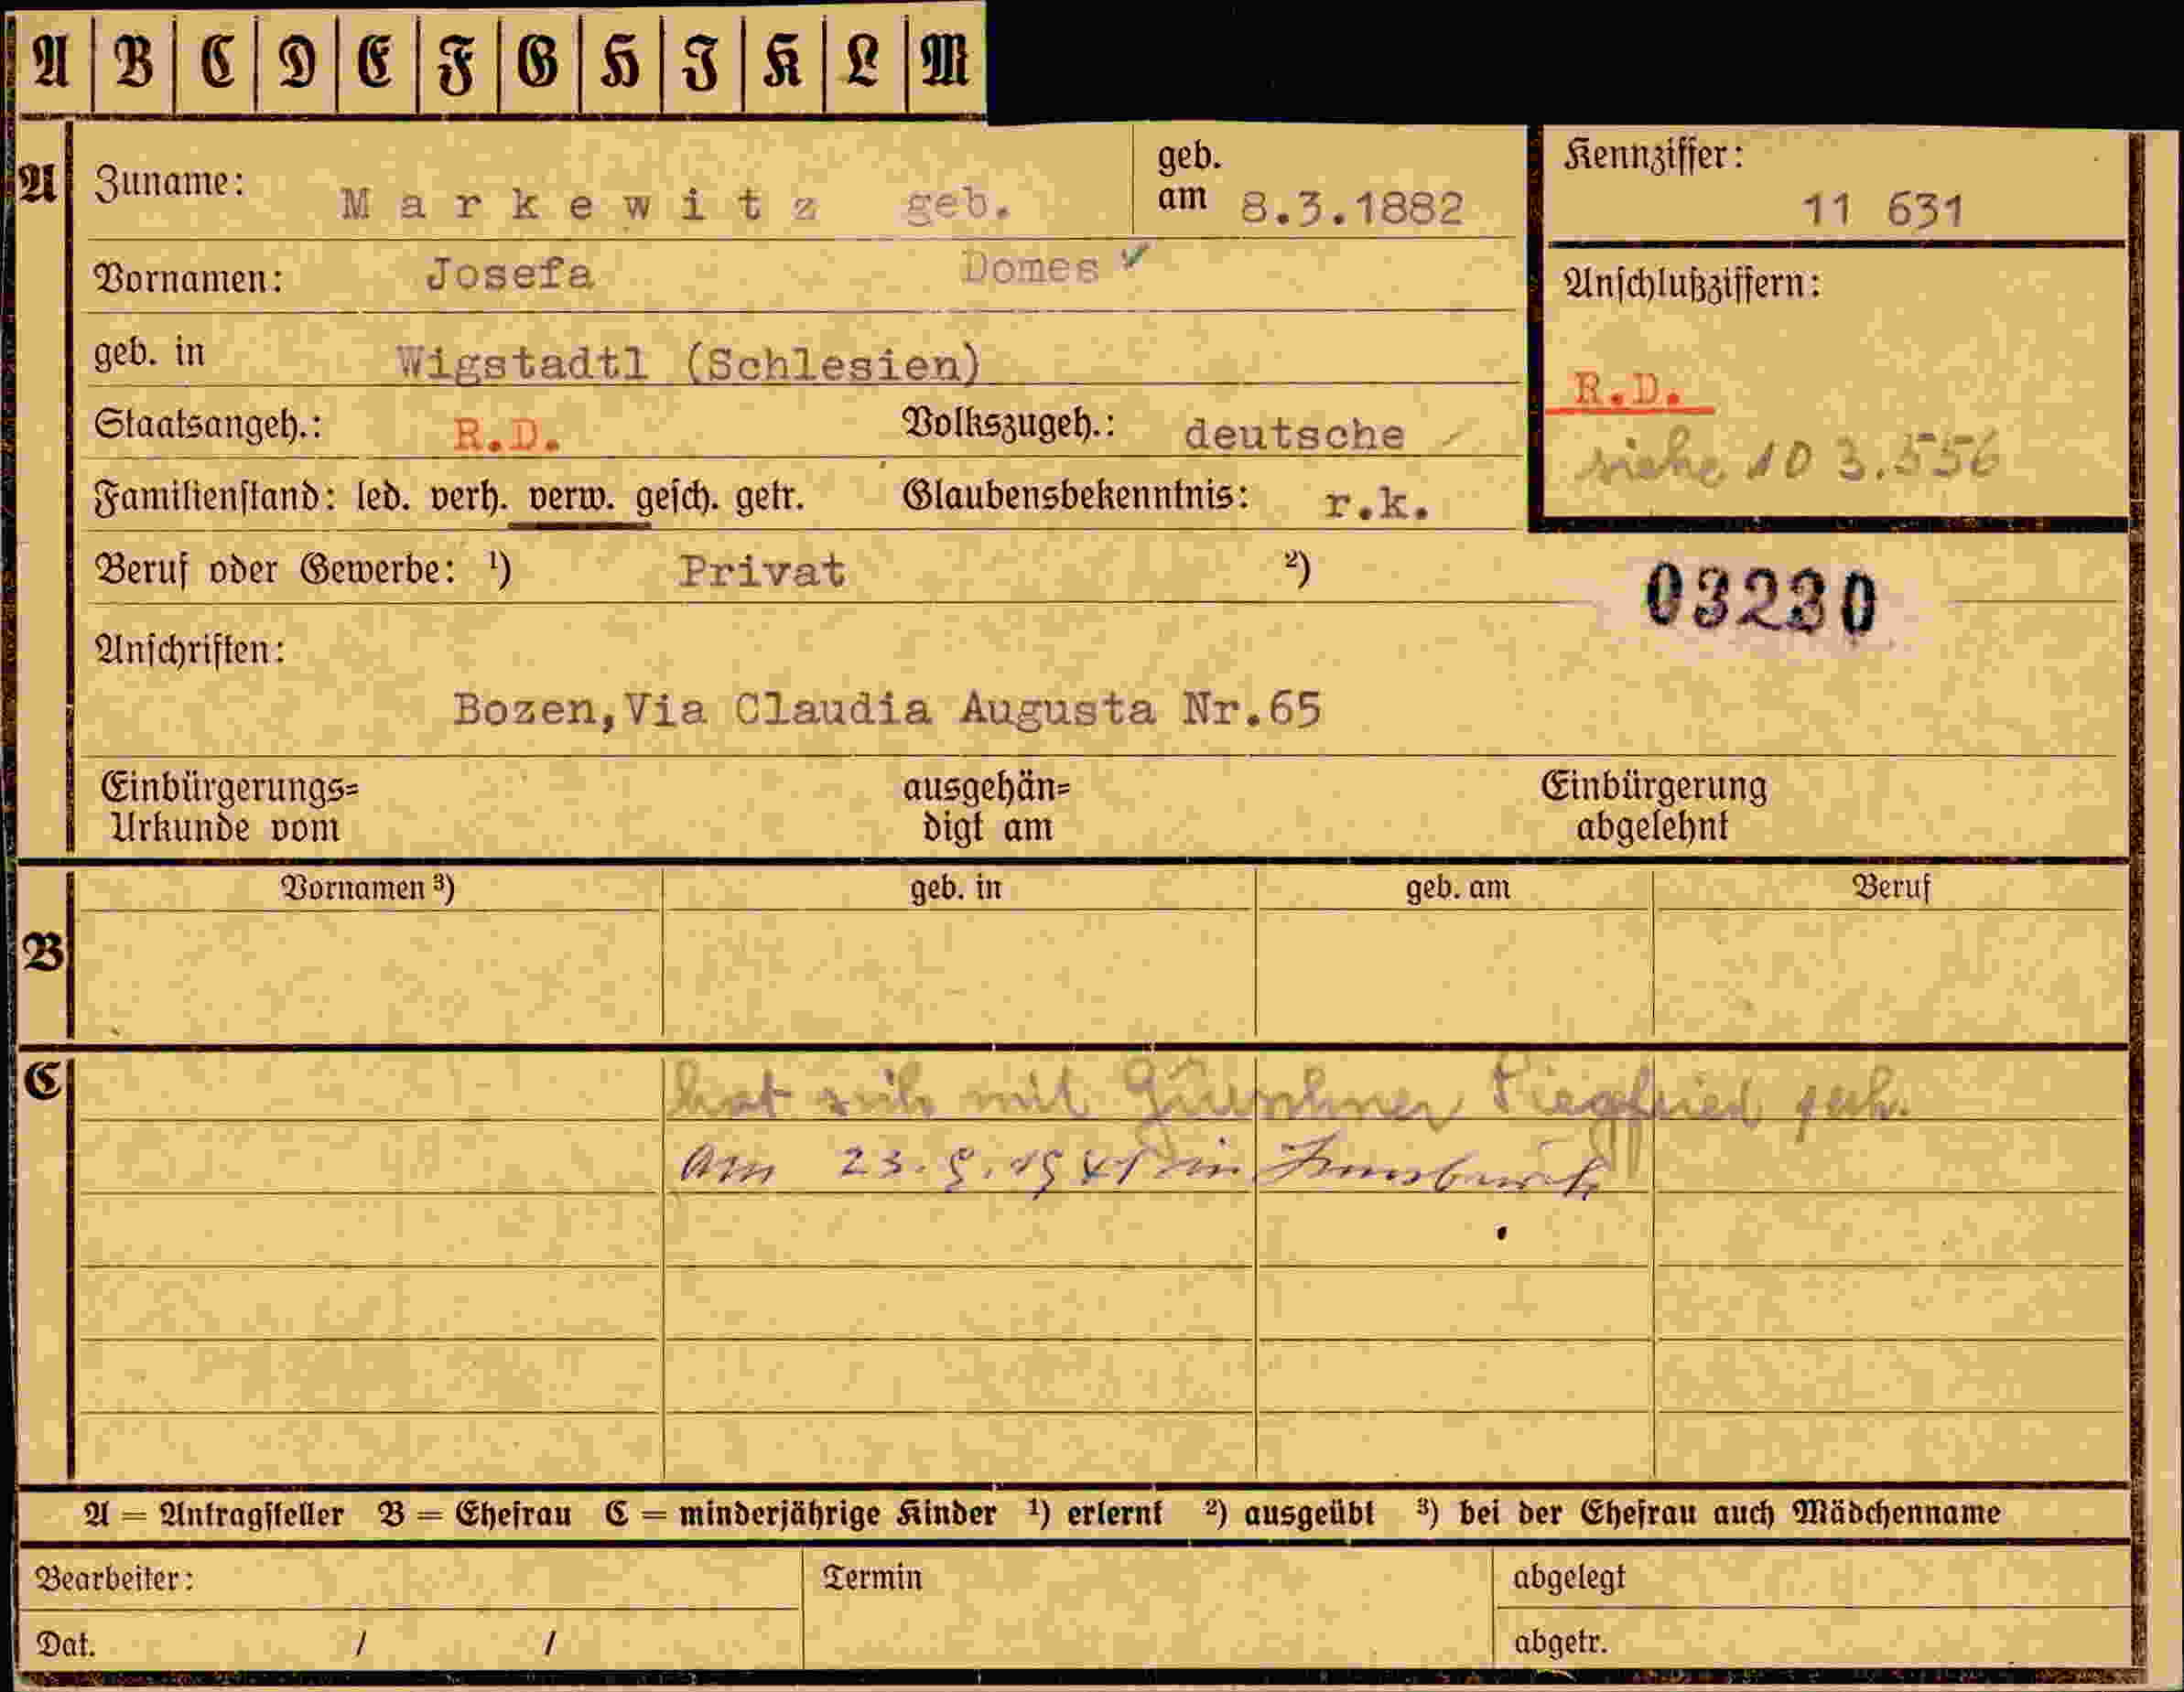 A B C D E F G H I K L M
A
Zuname: Markewitz geb. geb. am 8.3.1882
Kennziffer: 11 631
Vornamen: Josefa Domes ✓
Anschlußziffern:
geb. in Wigstadtl (Schlesien)
R.D.
Staatsangeh.: R.D. Volkszugeh.: deutsche
siehe 10 3.556
Familienstand: led. verh. verw. gesch. getr. Glaubensbekenntnis: r.k.
Beruf oder Gewerbe: ¹) Privat ²)
03230
Anschriften:
Bozen,Via Claudia Augusta Nr.65
Einbürgerungs= ausgehän= Einbürgerung
Urkunde vom digt am abgelehnt
B
Vornamen ³) geb. in geb. am Beruf
C
hat sich mit Siegfried
am in Innsbruck
A = Antragsteller B = Ehefrau C = minderjährige Kinder ¹) erlernt ²) ausgeübt ³) bei der Ehefrau auch Mädchenname
Bearbeiter: Termin abgelegt
Dat. / / abgetr.